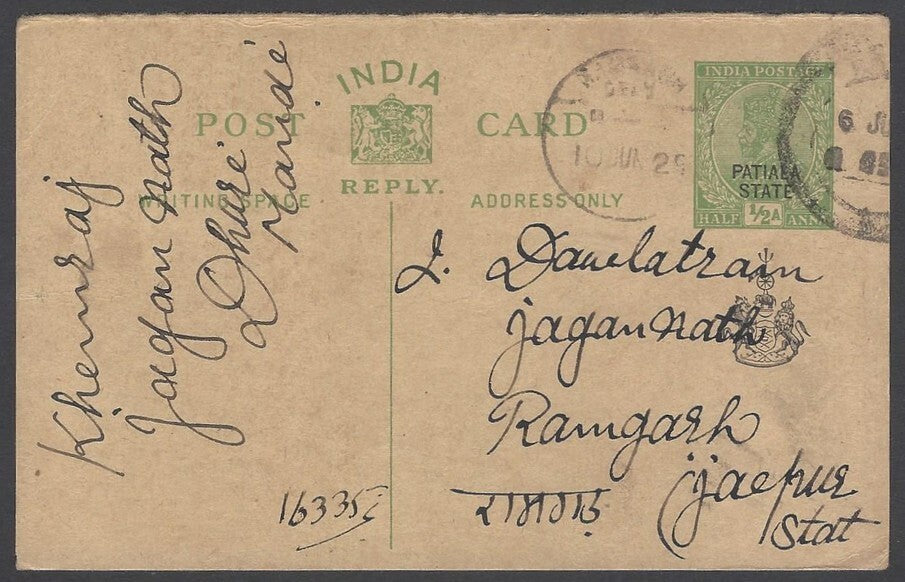 INDIA
POST CARD
REPLY.
WRITING SPACE
ADDRESS ONLY
INDIA POSTAGE
PATIALA
STATE
HALF ½A ANNA
10 JUN 29
6 JU
Khemraj
Jagan Nath
Dhuri
Mandi
J. Dawlatram
Jagannath
Ramgarh
रामगढ़
(Jaepur
Stat